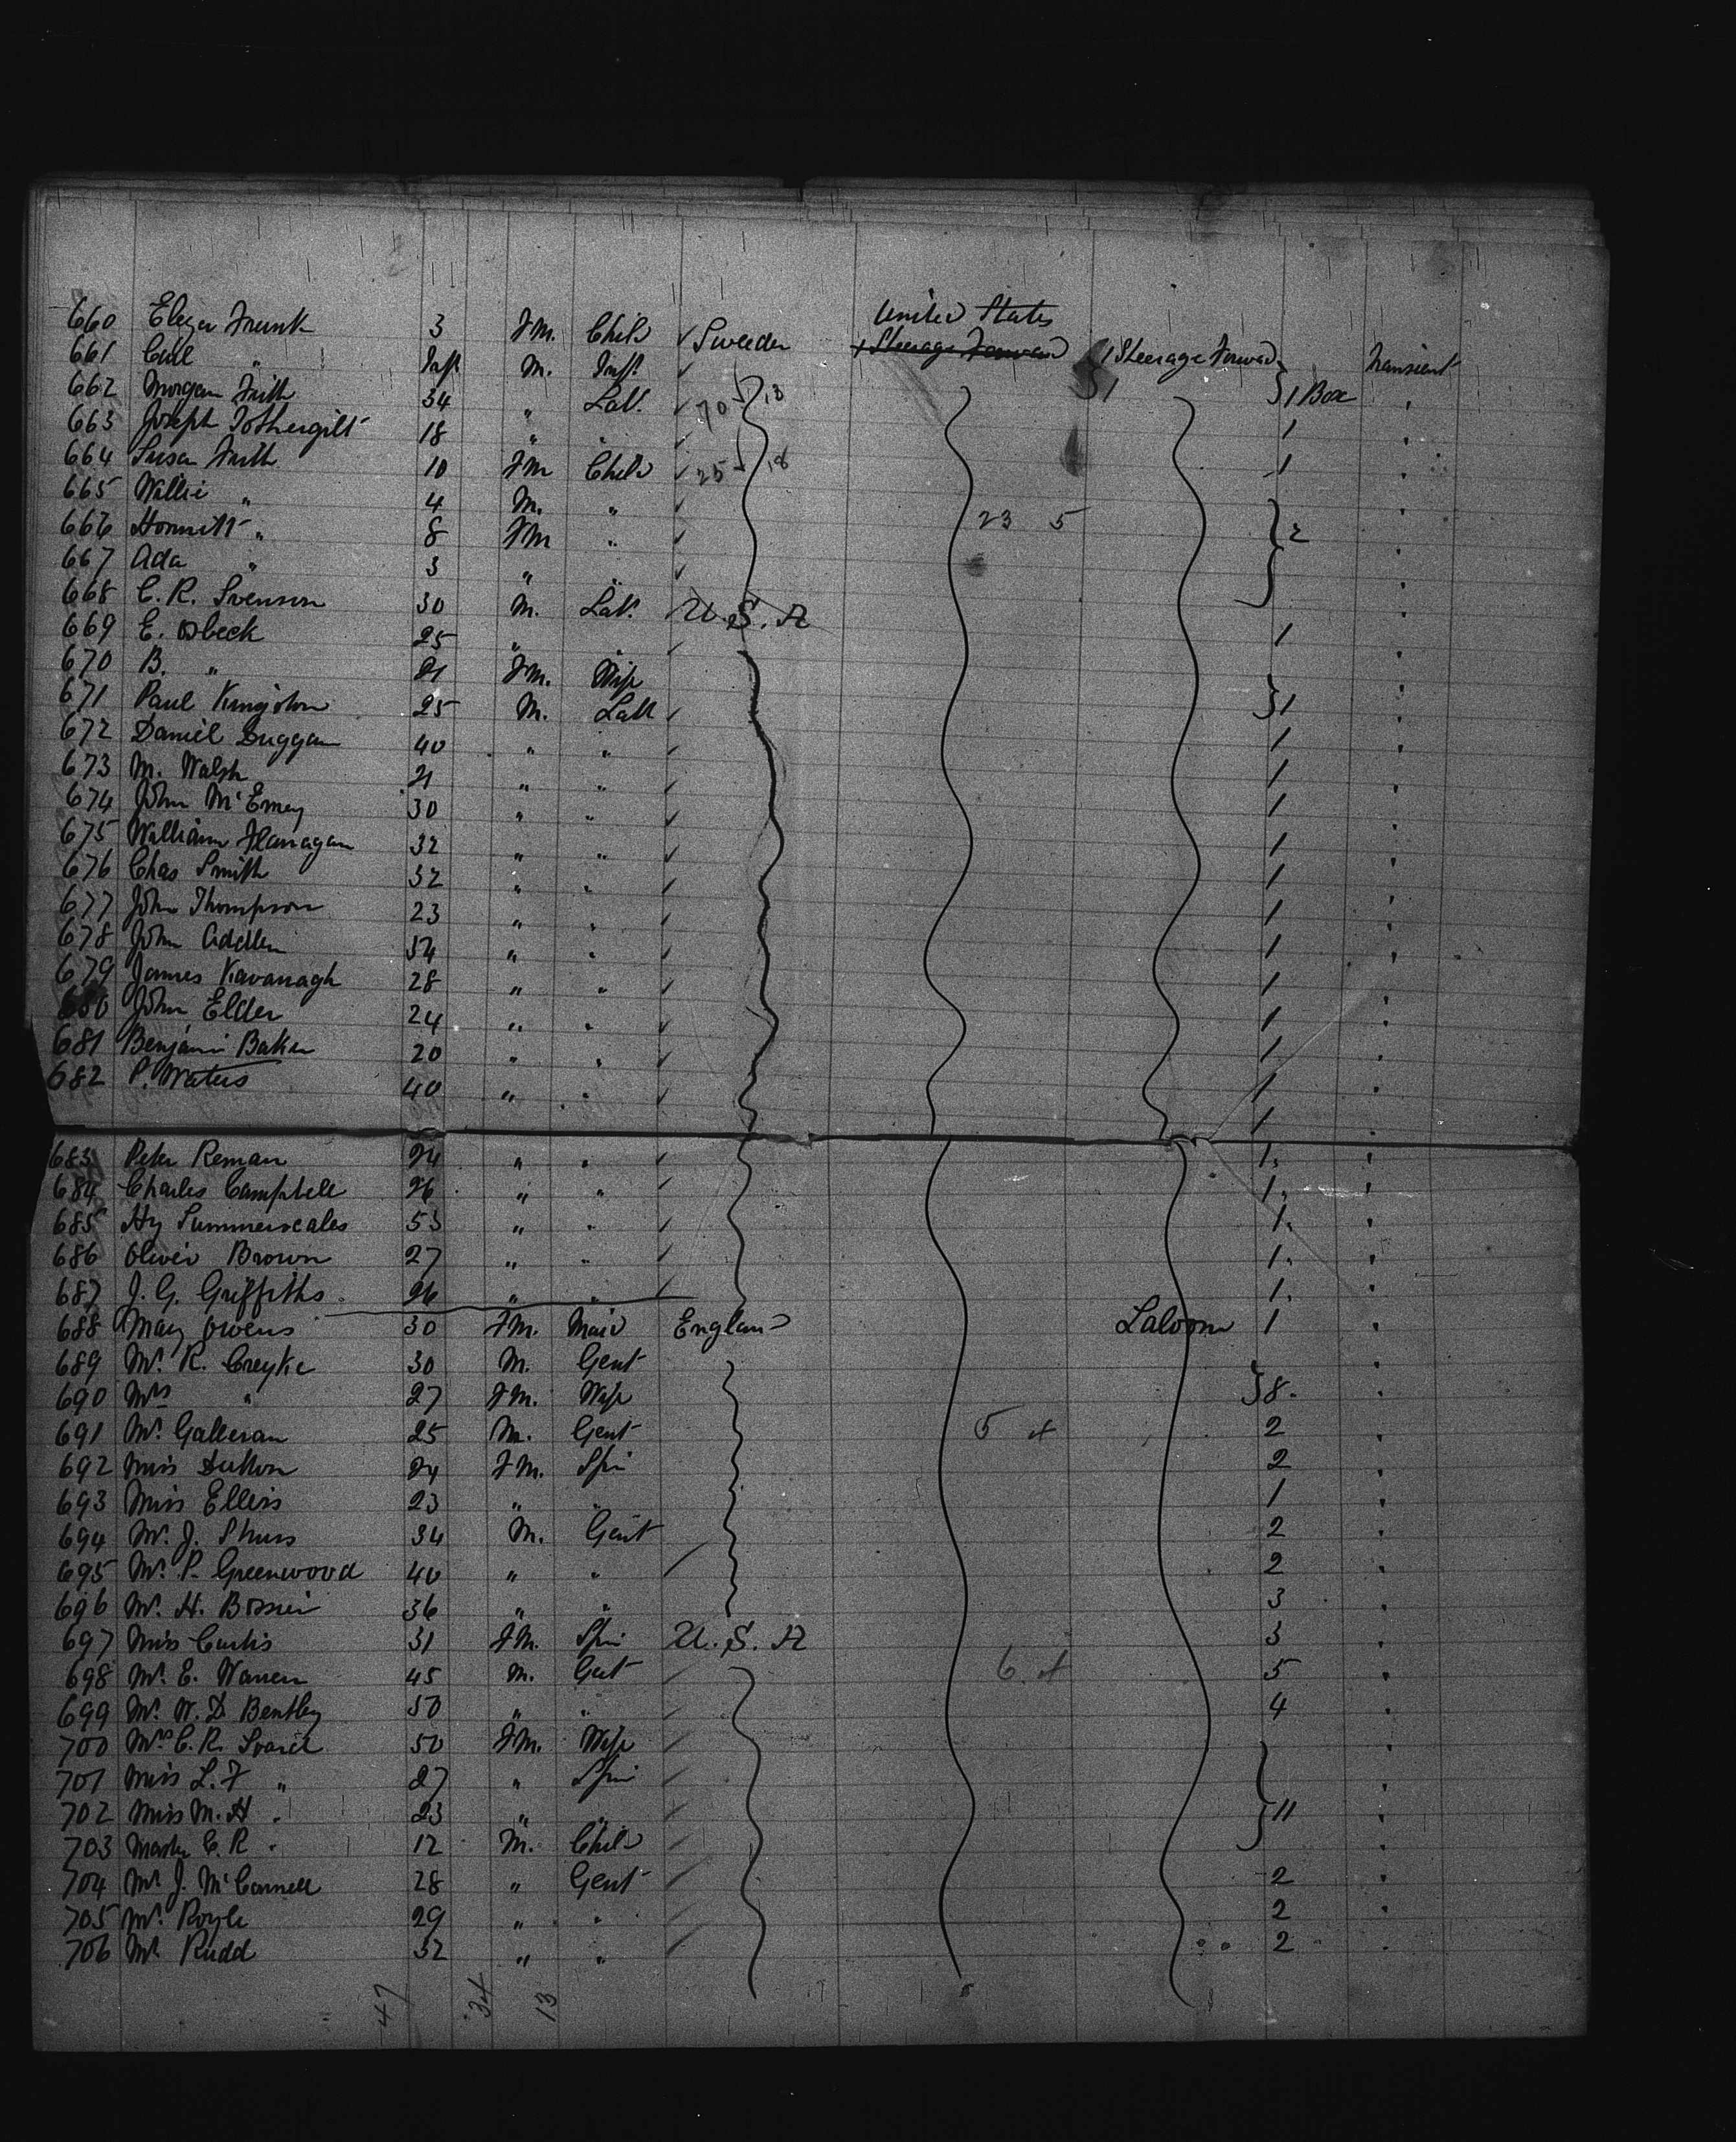 United States
660 Frunk 3 Fm. Child ✓ Sweden Steerage Forward Steerage Forward Transient
661 Carl " Inft M. Inft ✓
662 Morgan Frith 34 " Lab. ✓ 70 } 1 Box "
663 Joseph Fothergill 18 " " ✓ 1 "
664 Susan Frith 10 Fm Child ✓ 25 1 "
665 Willie " 4 M. " ✓ "
666 " 8 Fm " ✓ 23 5 } 2 "
667 Ada " 3 " " ✓ "
668 C. R. Svenson 30 M. Lab. U.S.A "
669 E. Obeck 25 " " ✓ 1 "
670 B. " 21 Fm. Wife "
671 Paul Kingston 25 M. Lab ✓ } 1 "
672 Daniel Duggan 40 " " ✓ 1 "
673 M. Walsh 21 " " ✓ 1 "
674 John McEmey 30 " " ✓ 1 "
675 William Flanagan 32 " " ✓ 1 "
676 Chas Smith 32 " " ✓ 1 "
677 John Thompson 23 " " ✓ 1 "
678 John 34 " " ✓ 1 "
679 James Kavanagh 28 " " ✓ 1 "
680 John Elder 24 " " ✓ 1 "
681 Benjamin Baker 20 " " ✓ 1 "
682 P. Waters 40 " " ✓ 1 "
683 Peter Reman 24 " " ✓ 1 "
684 Charles Campbell 26 " " ✓ 1 "
685 Hy Summerscales 53 " " ✓ 1 "
686 Oliver Brown 27 " " ✓ 1 "
687 J. G. Griffiths 26 " " ✓ 1
688 Mary Owens 30 Fm. Maid England Saloon 1 "
689 Mr. R. Creyke 30 M. Gent "
690 Mrs " 27 Fm. Wife } 8 "
691 Mr. Galleran 25 M. Gent 5 2 "
692 Miss Dutton 24 Fm. Spin 2 "
693 Miss Ellis 23 " " 1 "
694 Mr. J. 34 M. Gent 2 "
695 Mr. P. Greenwood 40 " " 2 "
696 Mr. H. 36 " " 3 "
697 Miss Curtis 31 Fm. Spin U.S.A 3 "
698 Mr. E. Warren 45 M. Gent 6 5 "
699 Mr. W. D Bentley 50 " " 4 "
700 Mrs C. R. 50 Fm. Wife "
701 Miss L. F " 27 " Spin "
702 Miss M. H " 23 " " } 11 "
703 Master C. R " 12 M. Child "
704 Mr J. McConnell 28 " Gent 2 "
705 Mr. Royle 29 " " 2 "
706 Mr. Rudd 32 " " 2 "
47 34 13